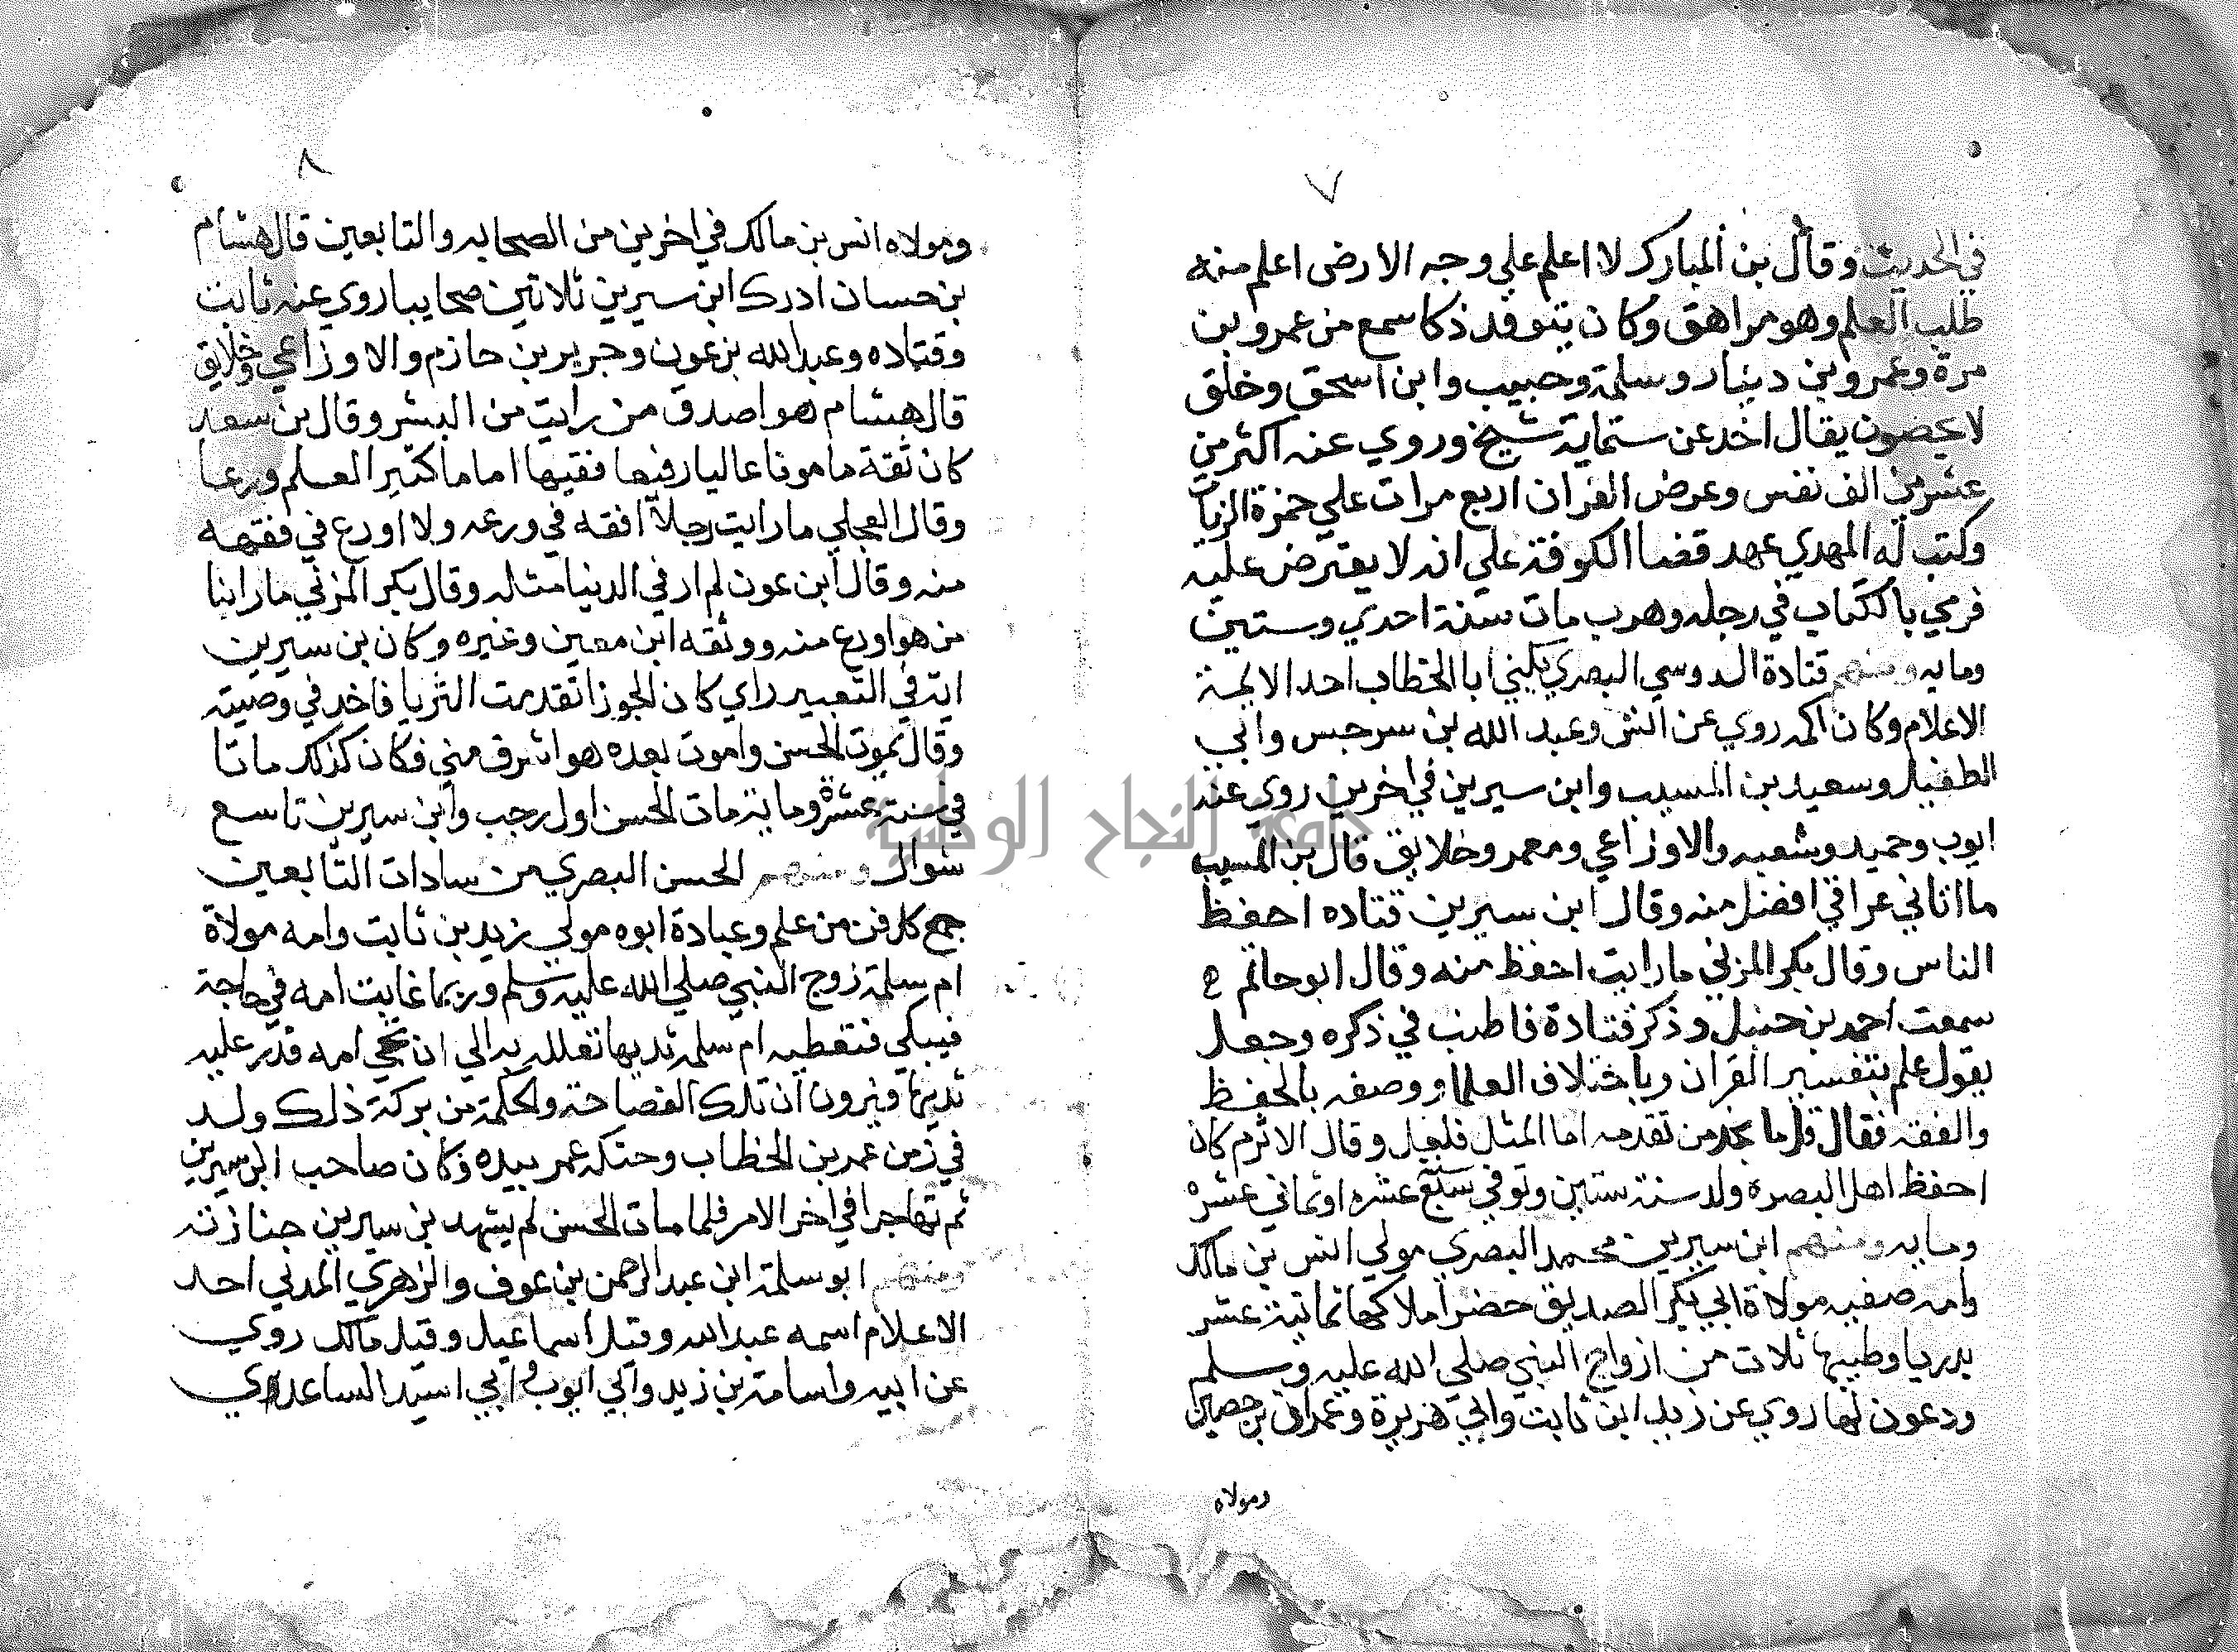 ٧
في الحديث وقال بن المبارك لا اعلم علي وجه الارض اعلم منه
طلب العلم وهو مراهق وكان يتوقد ذكا سمع من عمرو بن
مرة وعمرو بن دينار وسلمة وحبيب وابن اسحق وخلق
لا يحصون يقال اخد عن ستماية شيخ وروي عنه اكثر من
عشرين الف نفس وعرض القران اربع مرات علي حمزة الزيات
وكتب له المهدي عهد قضا الكوفة علي انه لا يعترض عليه
فرمي بالكتاب في دجله وهرب مات سنة احدي وستين
ومايه ومنهم قتادة السدوسي البصري يكني ابا الخطاب احد الايمة
الاعلام وكان اكمه روي عن انس وعبد الله بن سرجس وابي
الطفيل وسعيد بن المسيب وابن سيرين في اخرين روي عنه
ايوب وحميد وشعبه والاوزاعي ومعمر وخلايق قال بن المسيب
ما اتاني عراقي افضل منه وقال ابن سيرين قتاده احفظ
الناس وقال بكر المزني ما رايت احفظ منه وقال ابو حاتم
سمعت احمد بن حنبل وذكر قتادة فاطنب في ذكره وجعل
يقول علم بتفسير القران وباختلاف العلما ووصفه بالحفظ
والفقه فقال قل ما تجد من تقدمه اما المثل فلعل وقال الاثرم كان
احفظ اهل البصره ولد سنة ستين وتوفي سبع عشره او ثماني عشره
ومايه ومنهم ابن سيرين محمد البصري مولي انس بن مالك
وامه صفيه مولاة ابي بكر الصديق حضر املاكها ثمانية عشر
بدريا وطيبها ثلاث من ازواج النبي صلي الله عليه وسلم
ودعون لها روي عن زيد ابن ثابت وابي هريرة وعمران بن حصين
ومولاه
٨
ومولاه انس بن مالك في اخرين من الصحابه والتابعين قال هشام
بن حسان ادرك ابن سيرين ثلاثين صحابيا روي عنه ثابت
وقتاده وعبد الله بن عون وجرير بن حازم والاوزاعي وخلايق
قال هشام هو اصدق من رايت من البشر وقال بن سعد
كان ثقة مامونا عاليا رفيعا فقيها اماما كثير العلم ورعا
وقال العجلي ما رايت رجلا افقه في ورعه ولا اورع في فقهه
منه وقال ابن عون لم ار في الدنيا مثله وقال بكر المزني ما راينا
من هو اورع منه ووثقه ابن معين وغيره وكان بن سيرين
اية في التعبير راي كان الجوزا تقدمت الثريا فاخد في وصيته
وقال يموت الحسن واموت بعده هو اشرف مني فكان كذلك ماتا
في سنة عشرة ومايه مات الحسن اول رجب وابن سيرين تاسع
شوال ومنهم الحسن البصري من سادات التابعين
جمع كل فن من علم وعبادة ابوه مولي زيد بن ثابت وامه مولاة
ام سلمة زوج النبي صلي الله عليه وسلم وربما غابت امه في حاجة
فيبكي فتعطيه ام سلمه ثديها تعلله به الي ان تجي امه فدر عليه
ثديها ويرون ان تلك الفصاحة والحكمة من بركة ذلك ولد
في زمن عمر بن الخطاب وحنكه عمر بيده وكان صاحب ابن سيرين
ثم تهاجرا في اخر الامر فلما مات الحسن لم يشهد بن سيرين جنازته
ومنهم ابو سلمة ابن عبد الرحمن بن عوف والزهري المدني احد
الاعلام اسمه عبد الله وقيل اسماعيل وقيل مالك روي
عن ابيه واسامة بن زيد وابي ايوب وابي اسيد الساعدي
جامعة النجاح الوطنية